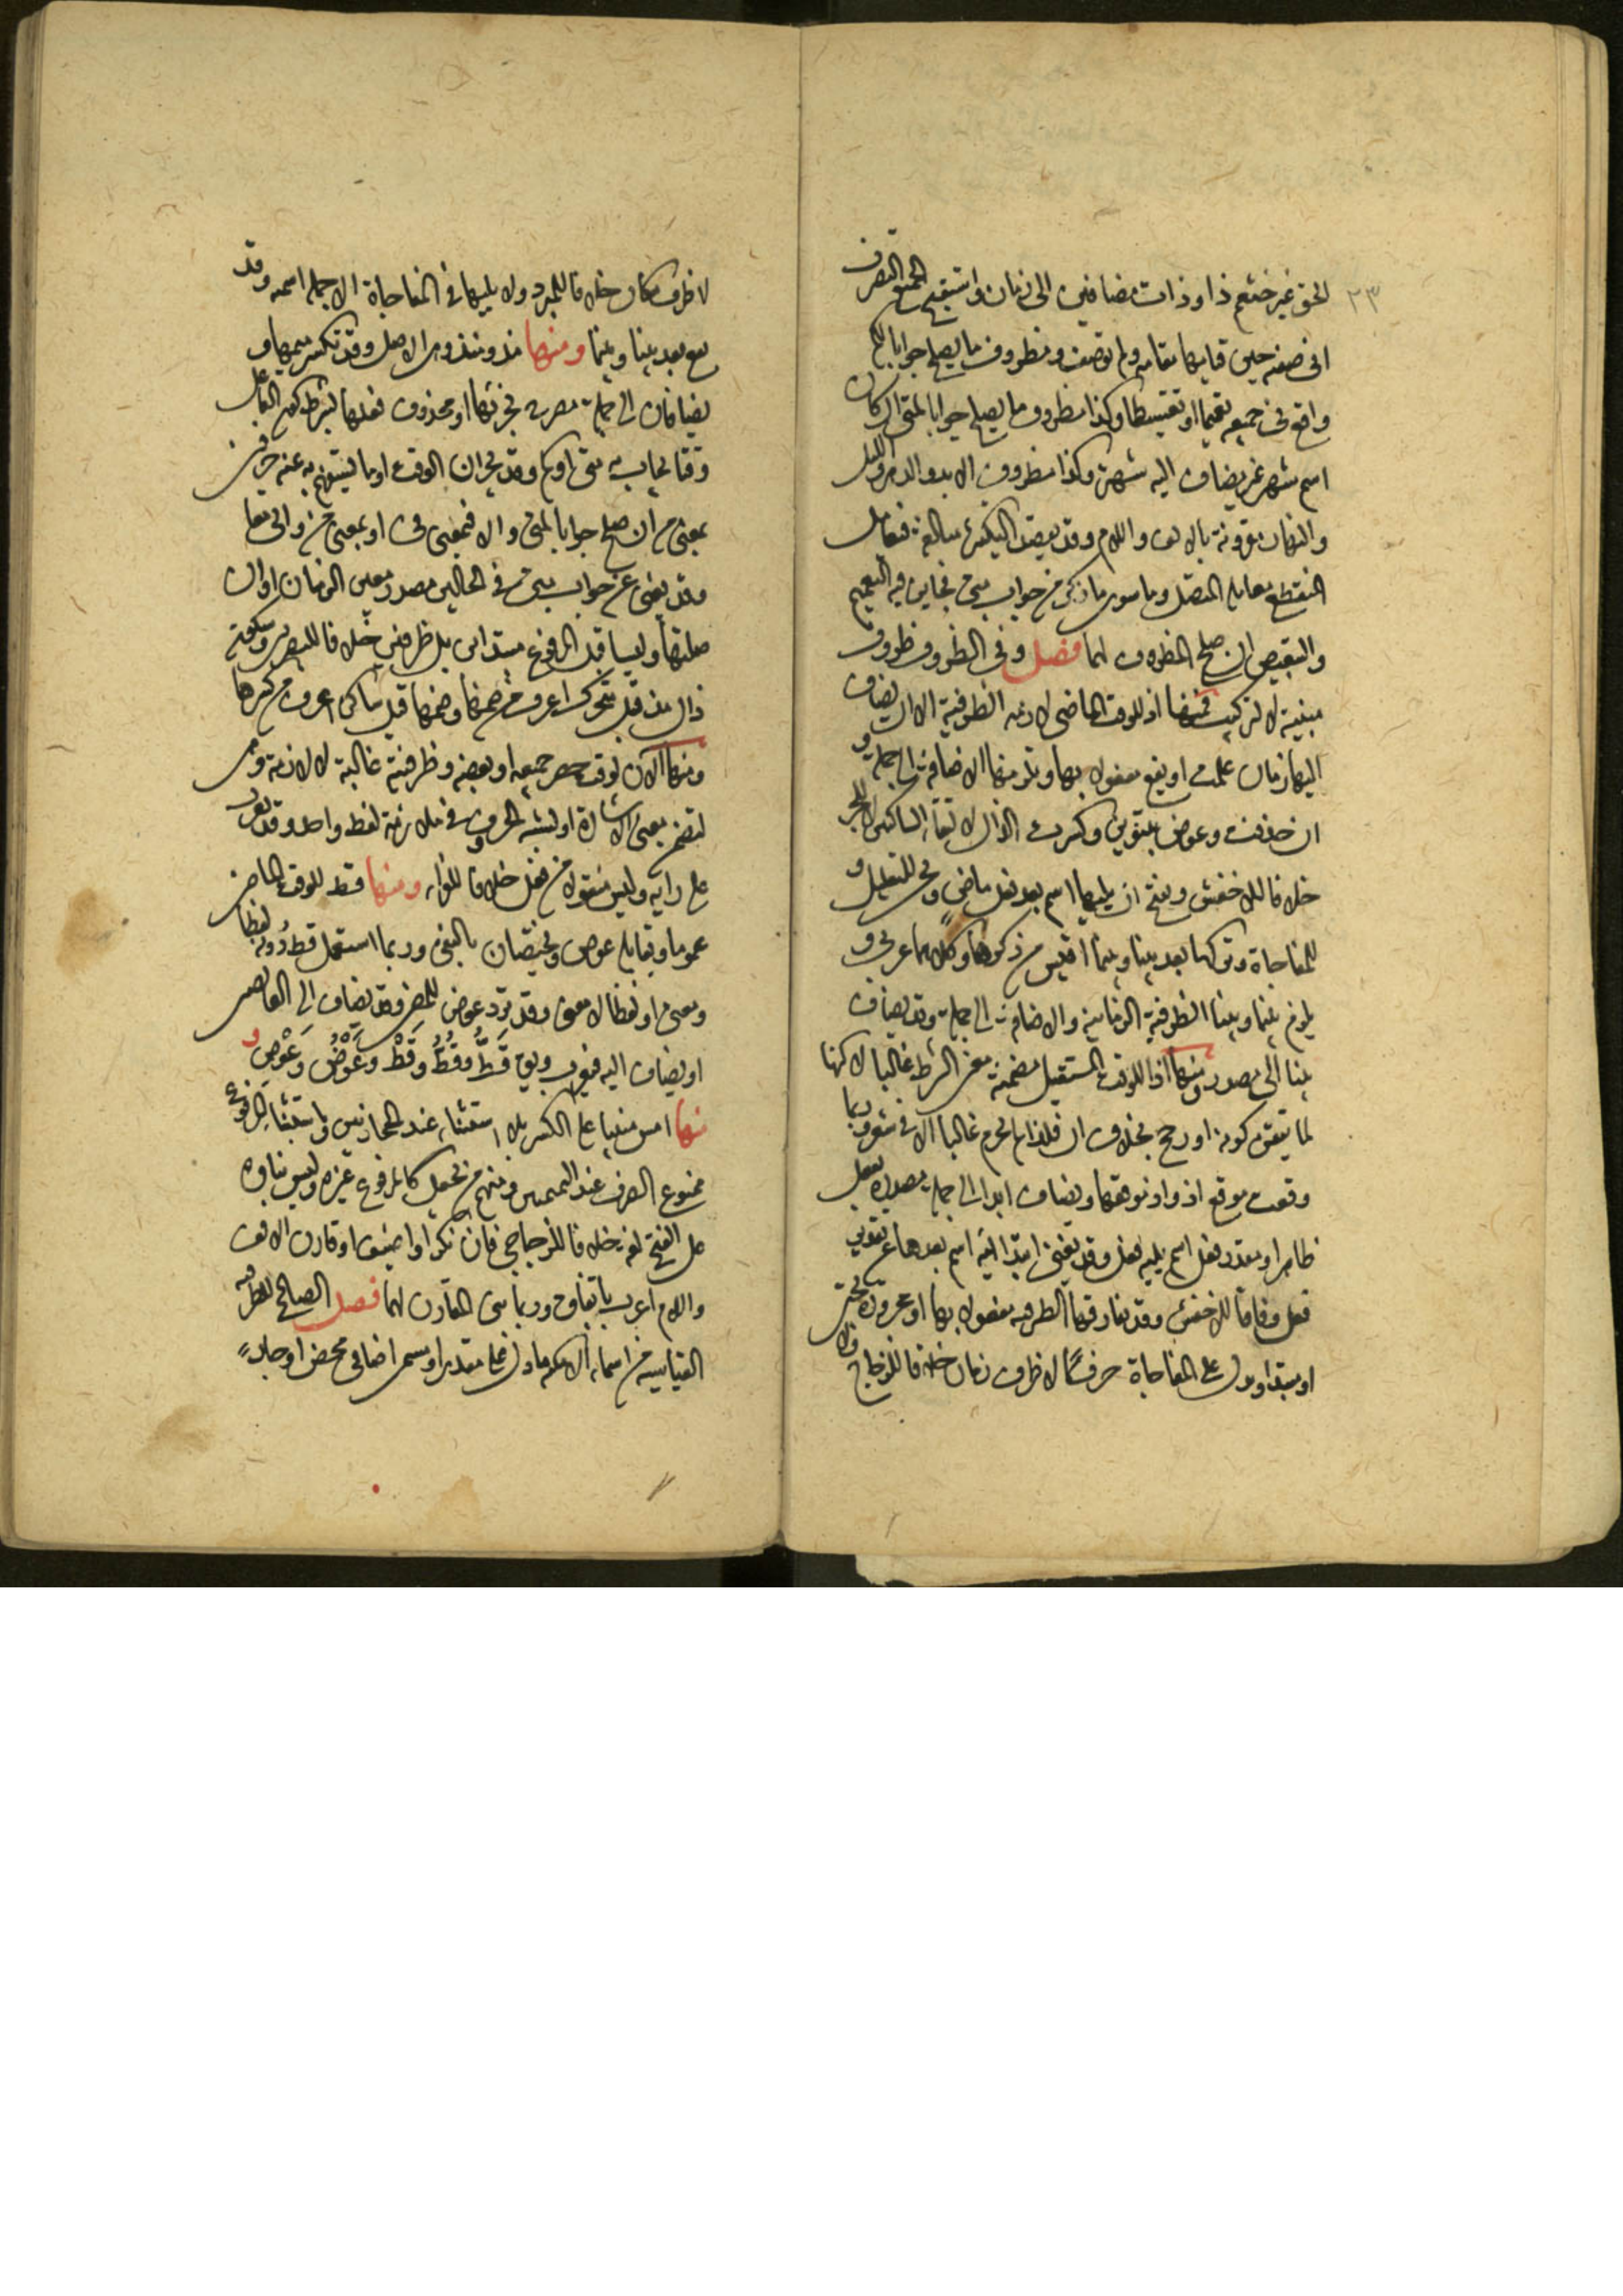 ٢٣
الحق غير خثعم ذا وذات مضافين الى زمان واستقبح الجميع التصرف
فى صفة حين قيامها مقامه ولم توصف ومظروف ما يصلح جوابا لكم
واقع فى جميعه تعميما او تقسيطا وكذا مظروف ما يصلح جوابا لمتى ان كان
اسم شهر غير مضاف اليه شهر وكذا مظروف الابد والدهر والليل
والنهار مقرونة بالالف واللام وقد يقصد التكثير مبالغة فيعامل
المنقطع معاملة المتصل وما سوى ما ذكر من جواب متى فجايز فيه التعميم
والتبعيض ان صلح المظروف لهما فصل وفى الظروف ظروف
مبنية لا لتركيب فمنها اذ للوقت الماضى لازمة الظرفية الا ان يضاف
اليها زمان او تقع مفعولا بها وتلزمها الاضافة الى جملة و
ان حذفت وعوض بتنوين وكسرت الذال لالتقاء الساكنين لا للجر
خلافا للاخفش ويقبح ان يليها اسم بعد فعل ماض وتجئ للتعليل و
للمفاجاة وتركها بعد بينا وبينما اقيس من ذكرها وكلاهما عربى و
يلزم بينما وبينا الظرفية الزمانية والاضافة الى جملة وقد يضاف
بينا الى مصدر ومنها اذا للوقت المستقبل مضمنة معنى الشرط غالبا لكنها
لما تيقن كونه او رجح بخلاف ان فلذا لم تجزم غالبا الا فى شعر وربما
وقعت موقع اذ واذ موقعها وتضاف ابدا الى جملة مصدرة بفعل
ظاهر او مقدر قبل اسم يليه فعل وقد تغنى ابتدائية اسم بعدها عن تقدير
فعل وفاقا للاخفش وقد تفارقها الظرفية مفعولا بها او مجرورة بحتى
او مبتدا وتدل على المفاجاة حرفا لا ظرف زمان خلافا للزجاج ولا
لا ظرف مكان خلافا للمبرد ولا يليها فى المفاجاة الا جملة اسمية وقد
تقع بعد بينا وبينما ومنها مذ ومنذ وهى الاصل وقد تكسر ميمهما و
يضافان الى جملة مصرح بجزئيها او محذوف فعلها بشرط كون الفاعل
وقتا يجاب به متى او كم وقد يجران الوقت او ما يستفهم به عنه حرفين
بمعنى من ان صلح جوابا لمتى والا فبمعنى فى او بمعنى من والى معا
وقد يغنى عن جواب متى فى الحالين مصدر معين الزمان او ان
صلتها وليسا قبل المرفوع مبتداين بل ظرفين خلافا للبصريين وسكون
ذال مذ قبل متحرك اعرف من ضمها وضمها قبل ساكن اعرف من كسرها
ومنها الان لوقت حضر جميعه او بعضه وظرفيته غالبة لا لازمة وبنى
لتضمن معنى الاشارة او لشبه الحرف فى ملازمة لفظ واحد وقد يعرب
على راى وليس منقولا من فعل خلافا للفراء ومنها قط للوقت الماضى
عموما ويقابله عوض ويختصان بالنفى وربما استعمل قط دونه لفظا
ومعنى او لفظا لا معنى وقد ترد عوض للمضى وقد يضاف الى العايضين
او يضاف اليه فيعرب ويقال قَطُّ وقُطُّ وقَطْ وعَوْضُ وعَوْضِ و
منها امس مبنيا على الكسر بلا استثناء عند الحجازيين وباستثناء المرفوع
ممنوع الصرف عند التميميين ومنهم من يجعل كالمرفوع غيره وليس بناؤه
على الفتح لغة خلافا للزجاجى فان نكر او اضيف او قارن الالف
واللام اعرب باتفاق وربما بنى المقارن لهما فصل الصالح للظرفية
القياسية من اسماء الامكنة ما دل على مقدر او مسمى اضافى محض او جار